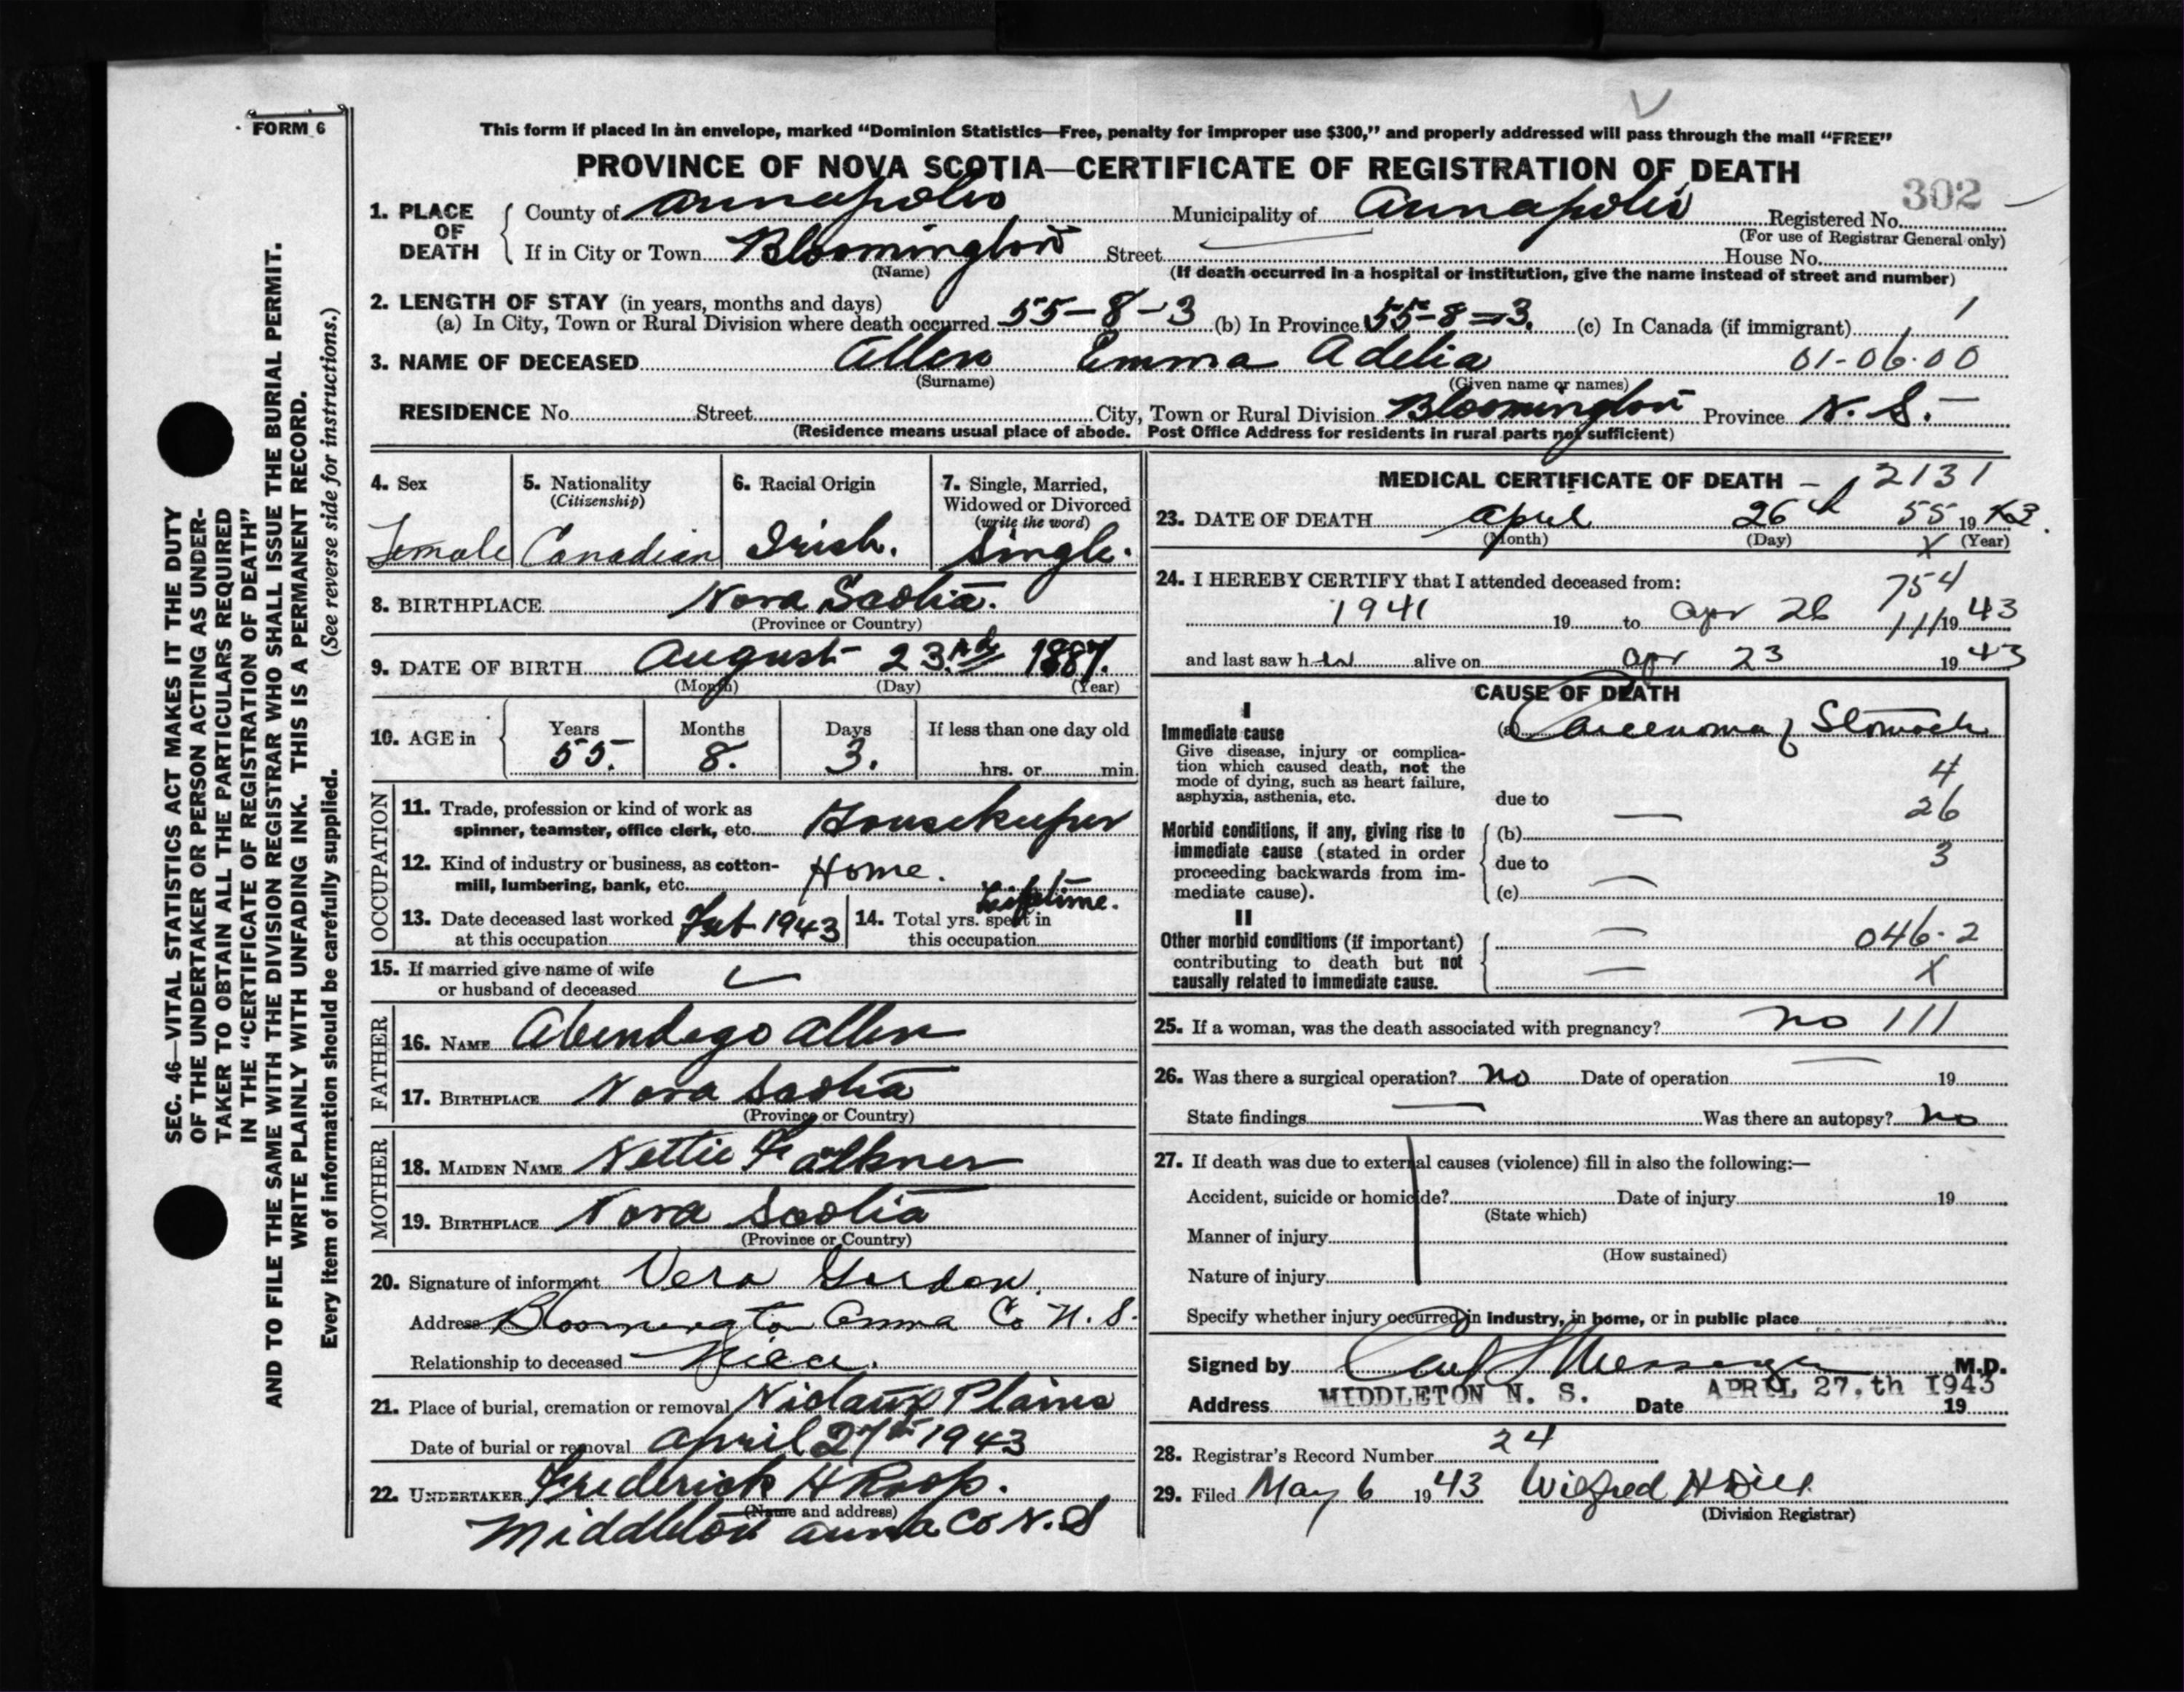 FORM 6
SEC. 46—VITAL STATISTICS ACT MAKES IT THE DUTY
OF THE UNDERTAKER OR PERSON ACTING AS UNDER-
TAKER TO OBTAIN ALL THE PARTICULARS REQUIRED
IN THE "CERTIFICATE OF REGISTRATION OF DEATH"
AND TO FILE THE SAME WITH THE DIVISION REGISTRAR WHO SHALL ISSUE THE BURIAL PERMIT.
WRITE PLAINLY WITH UNFADING INK. THIS IS A PERMANENT RECORD.
Every item of information should be carefully supplied. (See reverse side for instructions.)
This form if placed in an envelope, marked "Dominion Statistics—Free, penalty for improper use $300," and properly addressed will pass through the mail "FREE"
PROVINCE OF NOVA SCOTIA—CERTIFICATE OF REGISTRATION OF DEATH
302
1. PLACE OF DEATH County of Annapolis Municipality of Annapolis Registered No.
(For use of Registrar General only)
If in City or Town Bloomington Street House No.
(Name) (If death occurred in a hospital or institution, give the name instead of street and number)
2. LENGTH OF STAY (in years, months and days)
(a) In City, Town or Rural Division where death occurred 55-8-3 (b) In Province 55-8-3 (c) In Canada (if immigrant) 1
3. NAME OF DECEASED Allen Emma Adelia 01-06-00
(Surname) (Given name or names)
RESIDENCE No. Street City, Town or Rural Division Bloomington Province N. S.
(Residence means usual place of abode. Post Office Address for residents in rural parts not sufficient)
4. Sex 5. Nationality (Citizenship) 6. Racial Origin 7. Single, Married, Widowed or Divorced (write the word)
Female Canadian Irish. Single.
8. BIRTHPLACE Nova Scotia.
(Province or Country)
9. DATE OF BIRTH August 23rd 1887.
(Month) (Day) (Year)
10. AGE in Years Months Days If less than one day old
55. 8. 3. hrs. or min.
OCCUPATION
11. Trade, profession or kind of work as
spinner, teamster, office clerk, etc. Housekeeper
12. Kind of industry or business, as cotton-
mill, lumbering, bank, etc. Home.
13. Date deceased last worked at this occupation Feb 1943 14. Total yrs. spent in this occupation Lifetime.
15. If married give name of wife
or husband of deceased
FATHER
16. NAME Abendego Allen
17. BIRTHPLACE Nova Scotia
(Province or Country)
MOTHER
18. MAIDEN NAME Nettie Falkner
19. BIRTHPLACE Nova Scotia
(Province or Country)
20. Signature of informant Vera Gordon.
Address Bloomington Anna Co N. S.
Relationship to deceased Niece.
21. Place of burial, cremation or removal Nictaux Plains
Date of burial or removal April 27th 1943
22. UNDERTAKER Frederick H Roop.
(Name and address)
Middleton Anna Co N. S
MEDICAL CERTIFICATE OF DEATH 2131
23. DATE OF DEATH April 26th 55 1943.
(Month) (Day) X (Year)
24. I HEREBY CERTIFY that I attended deceased from: 754
1941 19 to Apr 26 111 19 43
and last saw her alive on Apr 23 19 43
CAUSE OF DEATH
I
Immediate cause (a) Carcenoma of Stomach
Give disease, injury or complica-
tion which caused death, not the
mode of dying, such as heart failure,
asphyxia, asthenia, etc.
4
due to 26
Morbid conditions, if any, giving rise to
immediate cause (stated in order
proceeding backwards from im-
mediate cause).
(b)
due to 3
(c)
II
Other morbid conditions (if important)
contributing to death but not
causally related to immediate cause.
046.2
X
25. If a woman, was the death associated with pregnancy? no 111
26. Was there a surgical operation? no Date of operation 19
State findings Was there an autopsy? no
27. If death was due to external causes (violence) fill in also the following:—
Accident, suicide or homicide? Date of injury 19
(State which)
Manner of injury
(How sustained)
Nature of injury
Specify whether injury occurred in industry, in home, or in public place
Signed by Messenger M.D.
Address MIDDLETON N. S. Date APRIL 27,th 1943 19
28. Registrar's Record Number 24
29. Filed May 6 1943 Wilfred H
(Division Registrar)